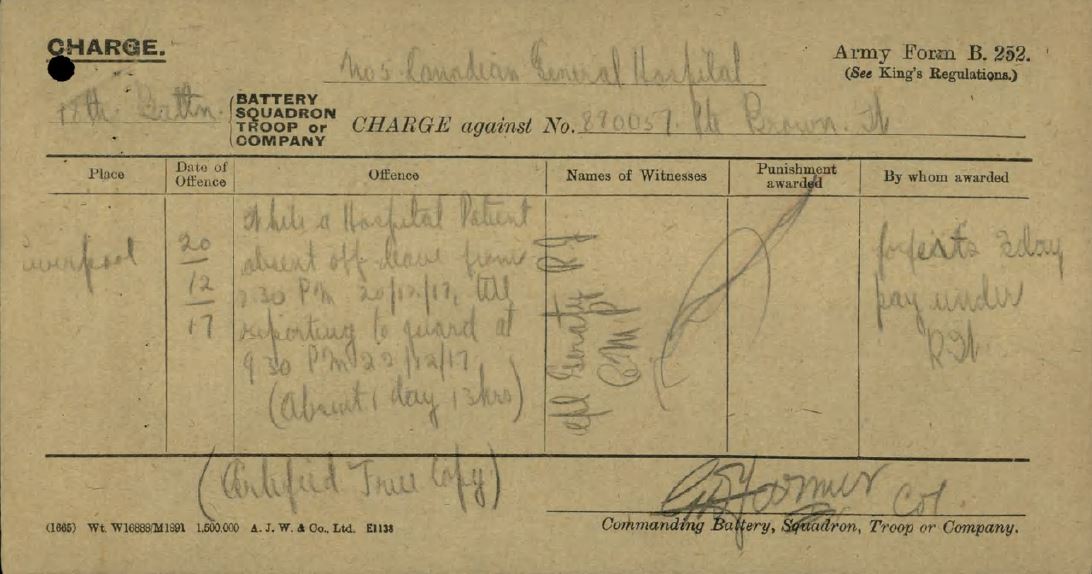 CHARGE.
No 5 Canadian General Hospital
Army Form B. 252.
(See King's Regulations.)
18th Battn.
BATTERY
SQUADRON
TROOP or
COMPANY
CHARGE against No. 890057. Pte Brown.
Place
Date of Offence
Offence
Names of Witnesses
Punishment awarded
By whom awarded
Liverpool
20
12
17
While a Hospital Patient
absent off leave from
30 P.M. 20/12/17, till
reporting to guard at
9 30 P.M. 22/12/17
(Absent 1 day 13 hrs)
C M P
forfeits 2 day
pay under
R W
(Certified True Copy)
Farmer Col.
(1665) Wt. W16888/M1891 1,500,000 A. J. W. & Co., Ltd. E1138
Commanding Battery, Squadron, Troop or Company.